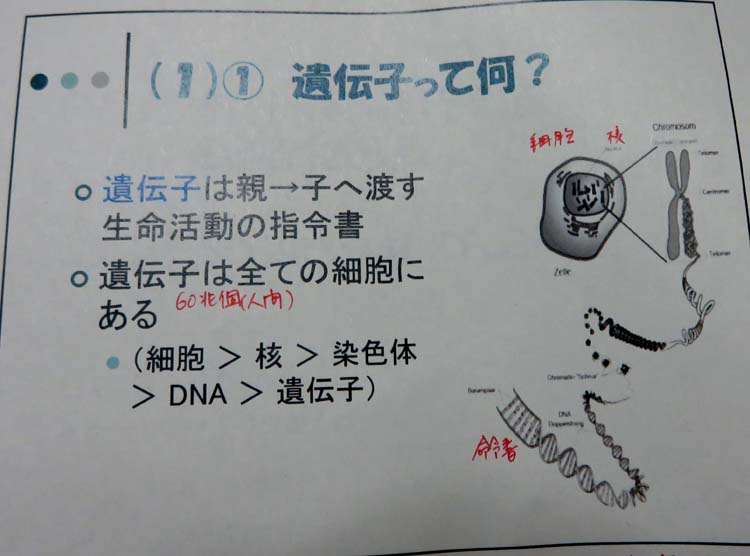 (1)① 遺伝子って何？
遺伝子は親→子へ渡す
生命活動の指令書
遺伝子は全ての細胞に
ある 60兆個(人間)
(細胞 ＞ 核 ＞ 染色体
＞ DNA ＞ 遺伝子)
細胞 核
Chromosom
Telomer
Centromer
Telomer
Zelle
DNA
Doppelstrang